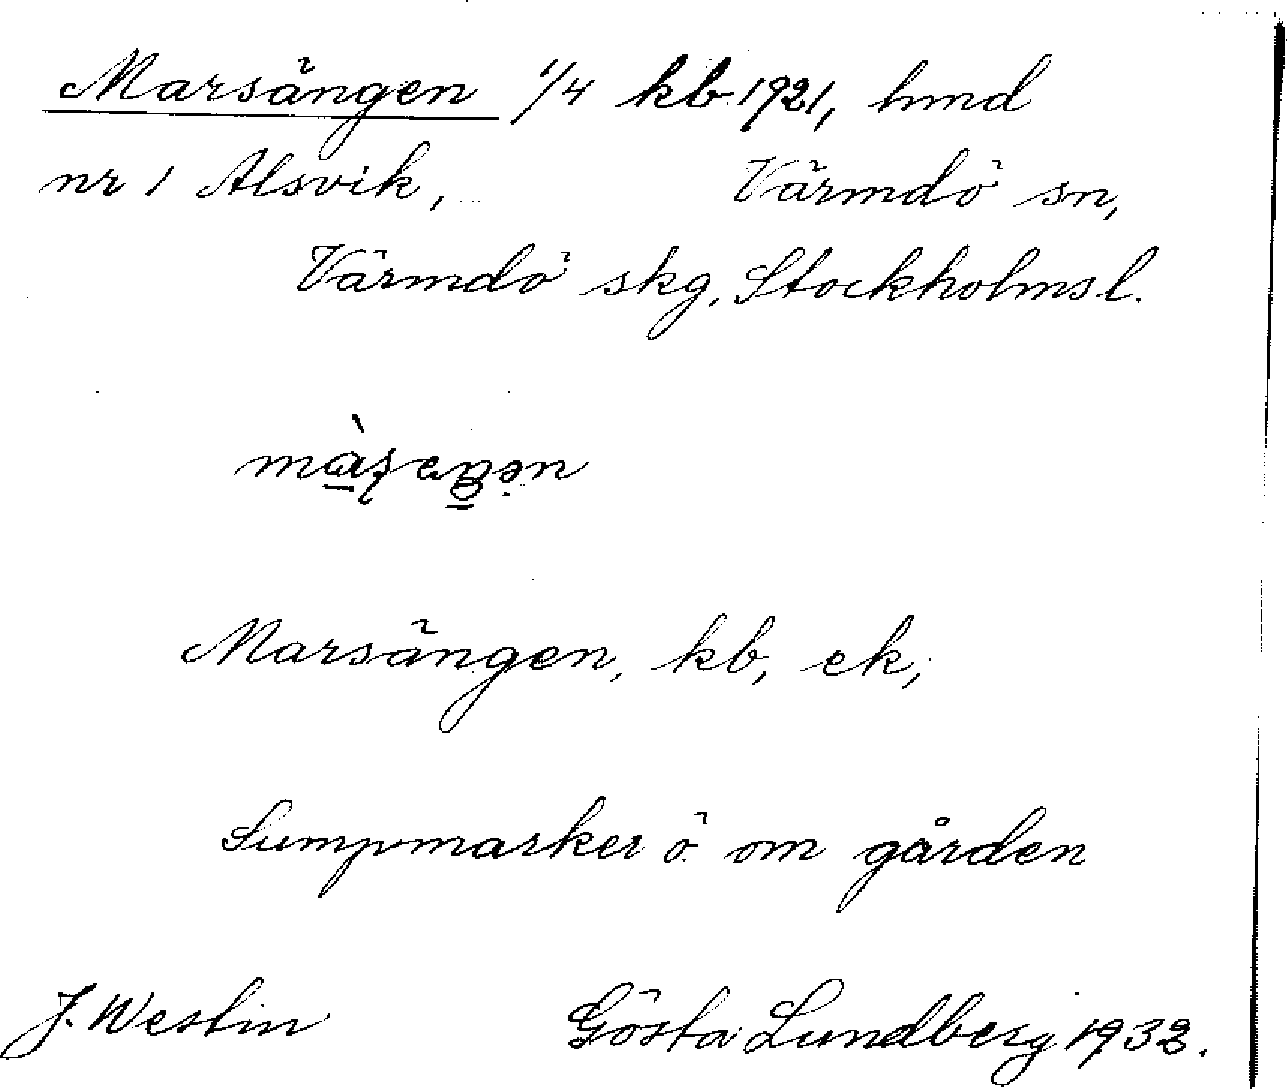 Marsängen 1/4 kb 1921, hmd
nr 1 Alsvik, Värmdö sn,
Värmdö skg, Stockholmsl.
Marsängen, kb, ek,
Sumpmarker ö om gården
J. Westin Gösta Lundberg 1932.